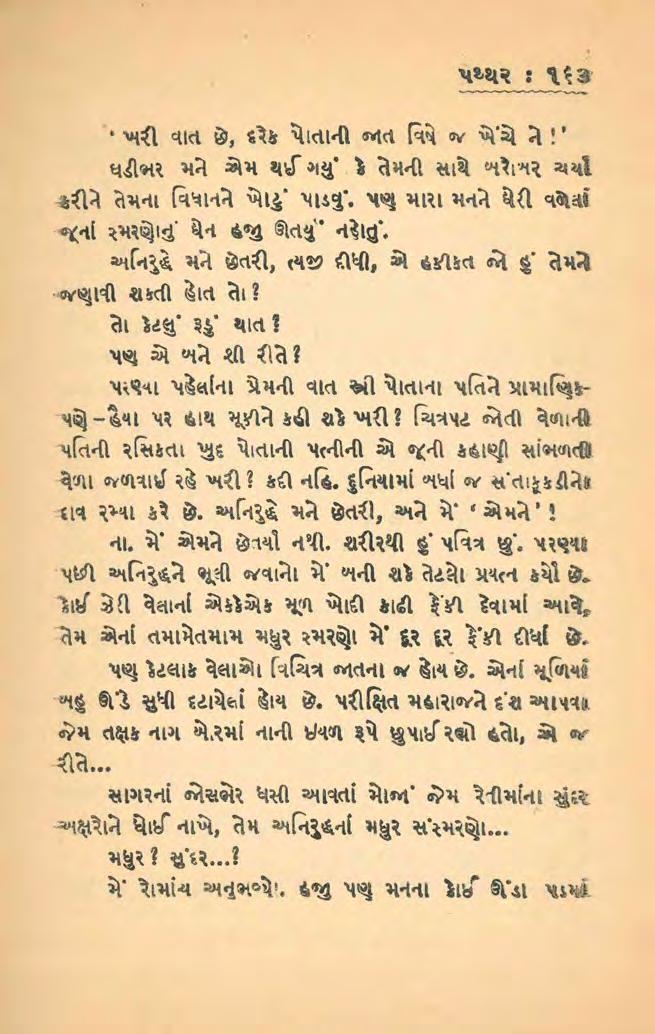 પથ્થર : ૧૬૩
' ખરી વાત છે, દરેક પોતાની જાત વિષે જ ખેંચે ને !'
ઘડીભર મને એમ થઈ ગયું કે તેમની સાથે બરોબર ચર્ચા
કરીને તેમના વિધાનને ખોટું પાડવું. પણ મારા મનને ઘેરી વળેલાં
જૂનાં સ્મરણોનું ઘેન હજુ ઊતર્યું નહોતું.
અનિરુદ્ધે મને છેતરી, ત્યજી દીધી, એ હકીકત જો હું તેમને
જણાવી શકતી હોત તો ?
તો કેટલું રૂડું થાત ?
પણ એ બને શી રીતે ?
પરણ્યા પહેલાંના પ્રેમની વાત સ્ત્રી પોતાના પતિને પ્રામાણિક-
પણે – હૈયા પર હાથ મૂકીને કહી શકે ખરી ? ચિત્રપટ જોતી વેળાની
પતિની રસિકતા ખુદ પોતાની પત્નીની એ જૂની કહાણી સાંભળતી
વેળા જળવાઈ રહે ખરી ? કદી નહિ. દુનિયામાં બધાં જ સંતાકૂકડીનો
દાવ રમ્યા કરે છે. અનિરુદ્ધે મને છેતરી, અને મેં ' એમને ' !
ના. મેં એમને છેતર્યા નથી. શરીરથી હું પવિત્ર છું. પરણ્યા
પછી અનિરુદ્ધને ભૂલી જવાનો મેં બની શકે તેટલો પ્રયત્ન કર્યો છે.
કોઈ ઝેરી વેલાનાં એકેકેએક મૂળ ખોદી કાઢી ફેંકી દેવામાં આવે,
તેમ એનાં તમામેતમામ મધુર સ્મરણો મેં દૂર દૂર ફેંકી દીધાં છે.
પણ કેટલાક વેલાઓ વિચિત્ર જાતના જ હોય છે. એનાં મૂળિયાં
બહુ ઊંડે સુધી દટાયેલાં હોય છે. પરીક્ષિત મહારાજને દંશ આપવા
જેમ તક્ષક નાગ બોરમાં નાની ઇયળ રૂપે છુપાઈ રહ્યો હતો, એ જ
રીતે...
સાગરનાં જોસભેર ધસી આવતાં મોજાં જેમ રેતીમાંના સુંદર
અક્ષરોને ધોઈ નાખે, તેમ અનિરુદ્ધનાં મધુર સંસ્મરણો...
મધુર ? સુંદર...?
મેં રોમાંચ અનુભવ્યો. હજુ પણ મનના કોઈ ઊંડા પડમાં